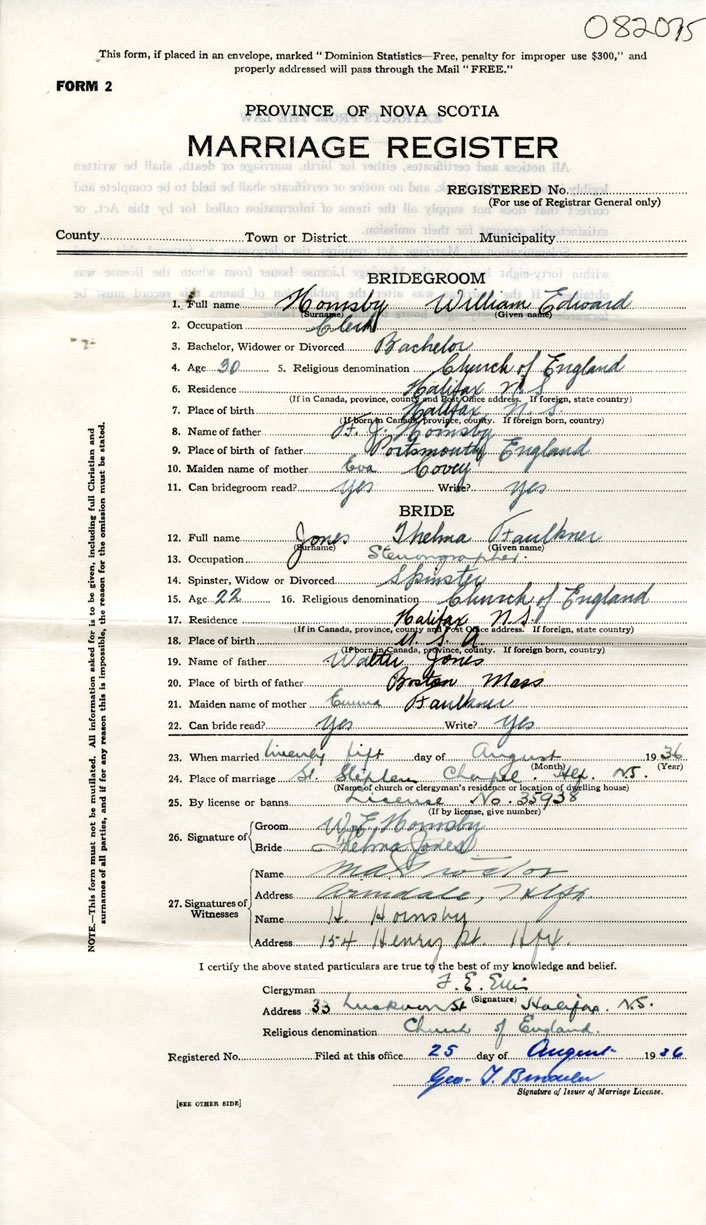 082075
This form, if placed in an envelope, marked "Dominion Statistics—Free, penalty for improper use $300," and
properly addressed will pass through the Mail "FREE."
FORM 2
PROVINCE OF NOVA SCOTIA
MARRIAGE REGISTER
REGISTERED No.
(For use of Registrar General only)
County Town or District Municipality
BRIDEGROOM
1. Full name Hornsby William Edward
(Surname) (Given name)
2. Occupation Clerk
3. Bachelor, Widower or Divorced Bachelor
4. Age 30 5. Religious denomination Church of England
6. Residence Halifax N.S.
(If in Canada, province, county and Post Office address. If foreign, state country)
7. Place of birth Halifax N.S.
(If born in Canada, province, county. If foreign born, country)
8. Name of father F. J. Hornsby
9. Place of birth of father Portsmouth England
10. Maiden name of mother Eva Covey
11. Can bridegroom read? yes Write? yes
BRIDE
12. Full name Jones Thelma Faulkner
(Surname) (Given name)
13. Occupation Stenographer.
14. Spinster, Widow or Divorced Spinster
15. Age 22 16. Religious denomination Church of England
17. Residence Halifax N.S.
(If in Canada, province, county and Post Office address. If foreign, state country)
18. Place of birth U.S.A.
(If born in Canada, province, county. If foreign born, country)
19. Name of father Walter Jones
20. Place of birth of father Boston Mass
21. Maiden name of mother Emma Faulkner
22. Can bride read? yes Write? yes
23. When married twenty fift day of August 1936
(Month) (Year)
24. Place of marriage St. Stephen Chapel. Hfx. N.S.
(Name of church or clergyman's residence or location of dwelling house)
25. By license or banns License No. 35938
(If by license, give number)
26. Signature of
Groom W. E. Hornsby
Bride Thelma Jones
27. Signatures of Witnesses
Name Proctor
Address Armdale, Hlfx.
Name H. Hornsby
Address 154 Henry St. Hfx.
I certify the above stated particulars are true to the best of my knowledge and belief.
Clergyman F. E. Ellis
(Signature)
Address 33 St Halifax. N.S.
Religious denomination Church of England.
Registered No. Filed at this office 25 day of August 1936
Geo. T.
Signature of Issuer of Marriage License.
[SEE OTHER SIDE]
NOTE.—This form must not be mutilated. All information asked for is to be given, including full Christian and
surnames of all parties, and if for any reason this is impossible, the reason for the omission must be stated.